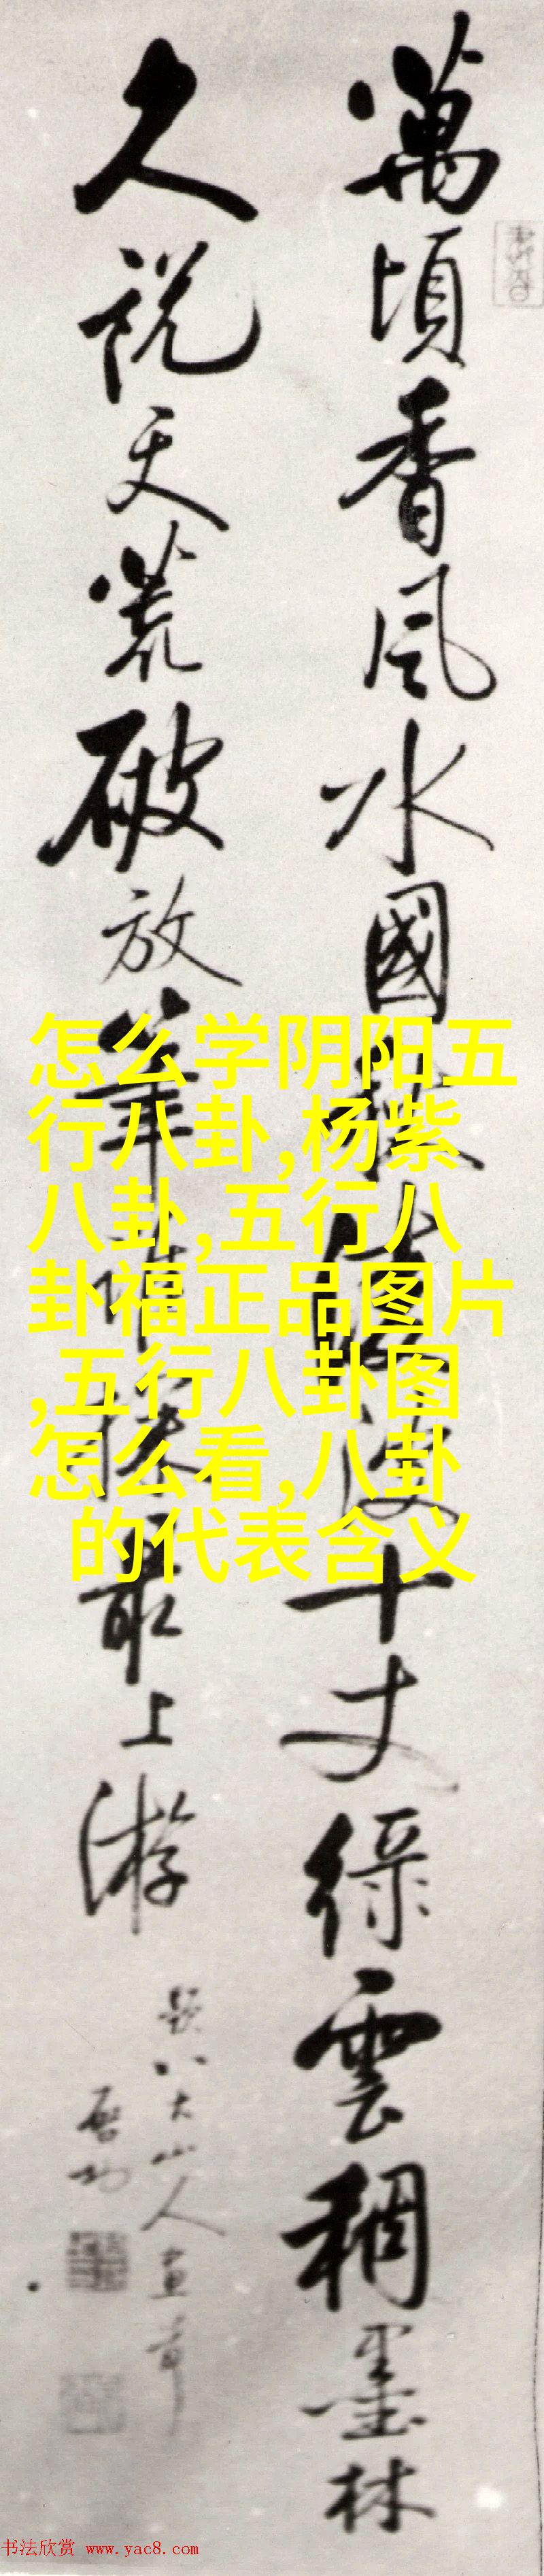 萬頃香風水國秋淩波十丈綠雲稠墨林
久說天荒破放筆誰探最上游
題八大山人畫
啓功
怎么学阴阳五
行八卦,杨紫
八卦,五行八
卦福正品图片
,五行八卦图
怎么看,八卦
的代表含义
书法欣赏 www.yac8.com